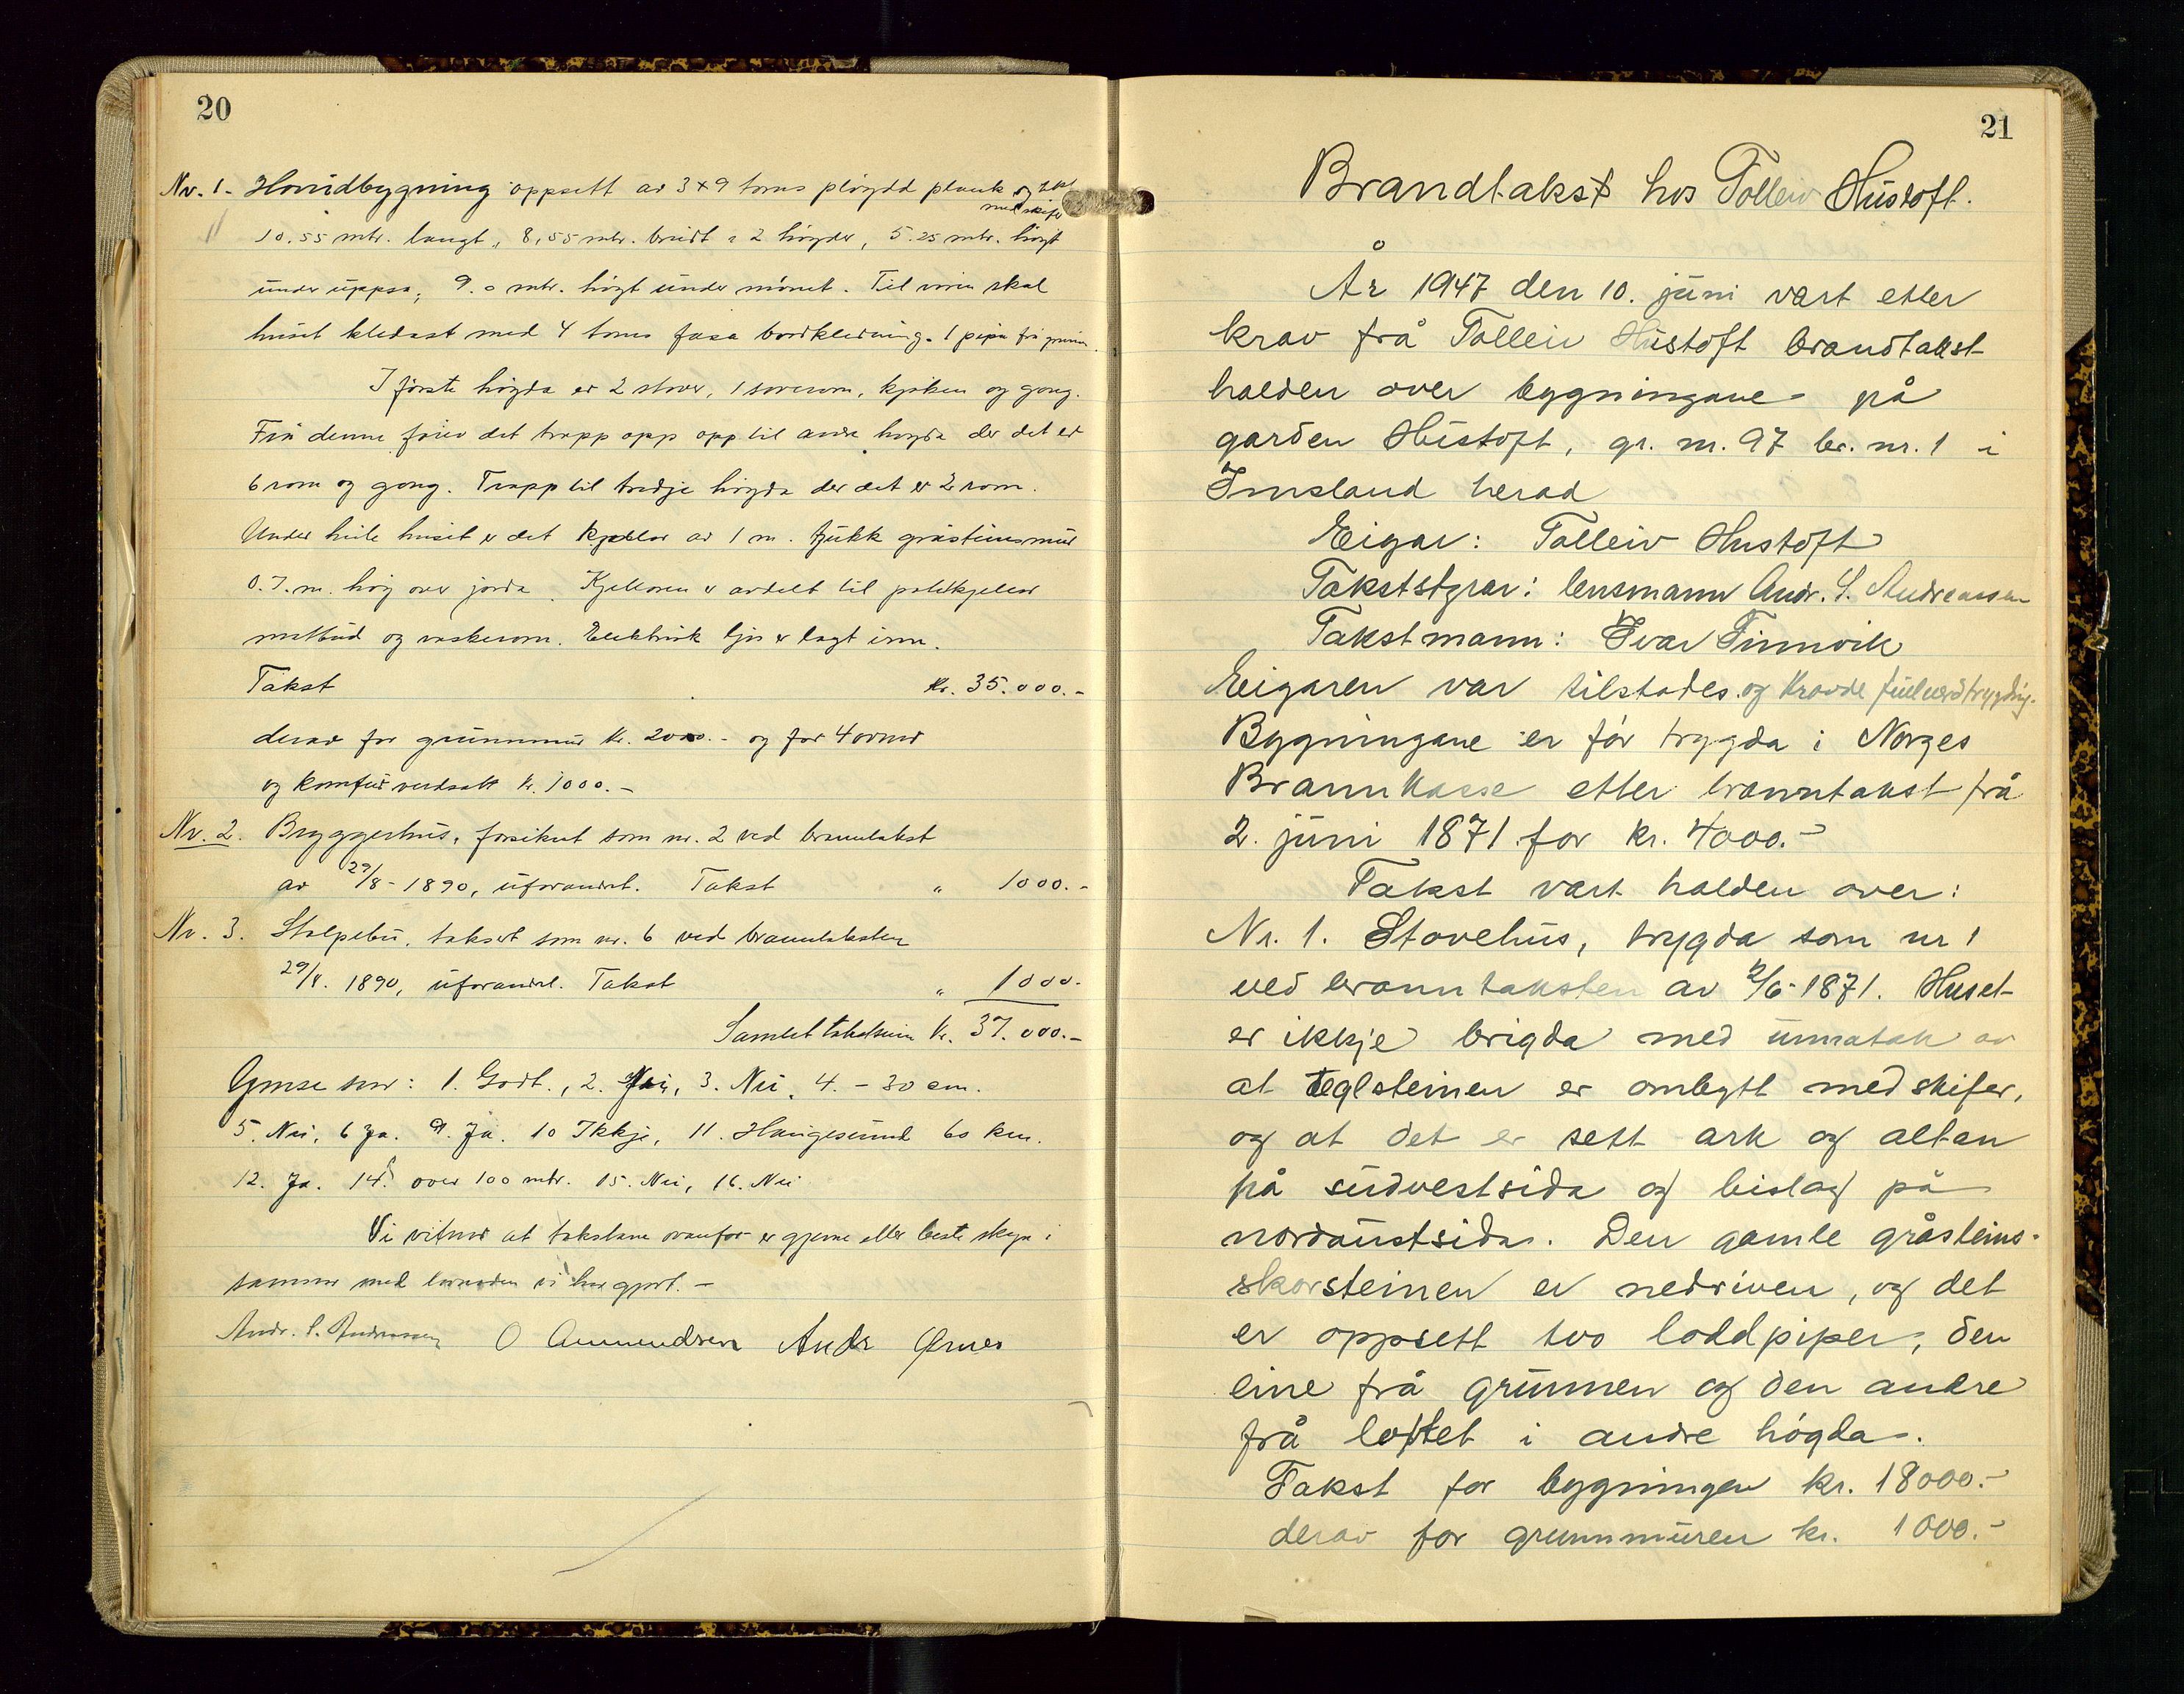 20
Nr. 1. Hovudbygning oppsett av 3x9 toms pløygd plank og tekt
med skifer
10.55 mtr. langt, 8,55 mtr. breidt i 2 høgder, 5.25 mtr. høgt
under uppsa, 9.0 mtr. høgt under mønet. Til våren skal
huset kledast med 4 toms fasa bordkledning. 1 pipa frå grunn.
I første høgda er 2 stover, 1 soverom, kjøken og gong.
Frå denne fører det trapp opp opp til andre høgda der det er
6 rom og gong. Trapp til tredje høgda der det er 2 rom.
Under heile huset er det kjellar av 1 m. tjukk gråsteinsmur
0.7. m. høg over jorda. Kjellaren er avdelt til potetkjellar
matbud og vaskerom. Elektrisk ljos er lagt inn.
Takst kr. 35.000.-
derav for grunnmur kr. 2000.- og for 4 omnar
og komfur verdsatt kr. 1000.-
Nr. 2. Bryggerhus, forsikret som nr. 2 ved branntakst
av 29/8-1890, uforandret. Takst " 1000.-
Nr. 3. Stolpebu, taksert som nr. 6 ved branntaksten
29/8. 1890, uforandret. Takst " 1000.-
Samlet takstsum kr. 37.000.-
Ymse svar: 1. Godt., 2. Nei, 3. Nei, 4. - 30 cm.
5. Nei, 6 Ja. 9. Ja. 10 Ikkje, 11. Haugesund 60 km.
12. Ja. 14. over 100 mtr. 15. Nei, 16. Nei
Vi vitnar at takstane ovanfor er gjevne etter beste skjøn i
samsvar med lovnaden vi har gjort.-
Andr. S. Andreassen O Ammundsen Andr Ørnes
21
Brandtakst hos Tolleiv Hustoft.
År 1947 den 10. juni vart etter
krav frå Tolleiv Hustoft brandtakst
halden over bygningane på
garden Hustoft, gr. nr. 97 br. nr. 1 i
Imsland herad
Eigar: Tolleiv Hustoft
Takststyrar: lensmann Andr. S. Andreassen
Takstmann: Ivar Finnvik
Eigaren var tilstades. og kravde fullverdtrygding.
Bygningane er før trygda i Norges
Brannkasse etter branntakst frå
2. juni 1871 for kr. 4000.-
Takst vart halden over:
Nr. 1. Stovehus, trygda som nr 1
ved branntaksten av 2/6-1871. Huset
er ikkje brigda med unnatak av
at teglsteinen er ombytt med skifer,
og at det er sett ark og altan
på sudvestsida og bislag på
nordaustsida. Den gamle gråsteins-
skorsteinen er nedriven, og det
er oppsett two loddpiper, den
eine frå grunnen og den andre
frå loftet i andre høgda.
Takst for bygningen kr. 18000.-
derav for grunnmuren kr. 1000.-